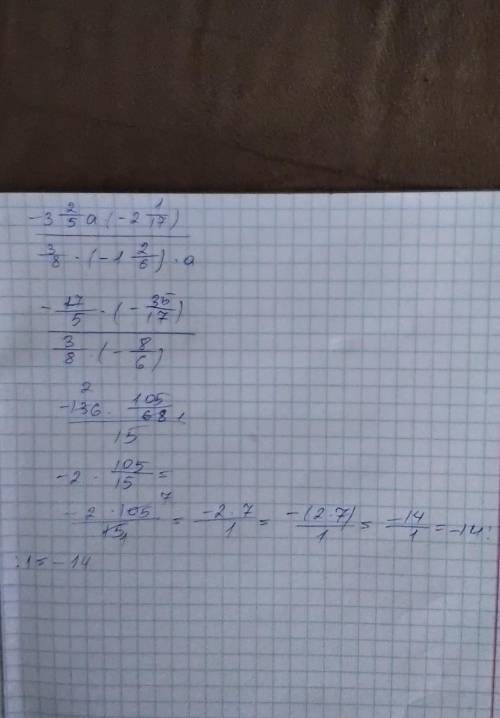 -3 2/5 a (-2 1/17)
3/8 · (-1 2/6) · a
- 17/5 · (- 35/17)
3/8 · (- 8/6)
2
-136 · 105/68 1
15
-2 · 105/15 =
-2 · 105 7 / 15 1 = -2 · 7 / 1 = -(2·7) / 1 = -14/1 = -14 :
: 1 = -14